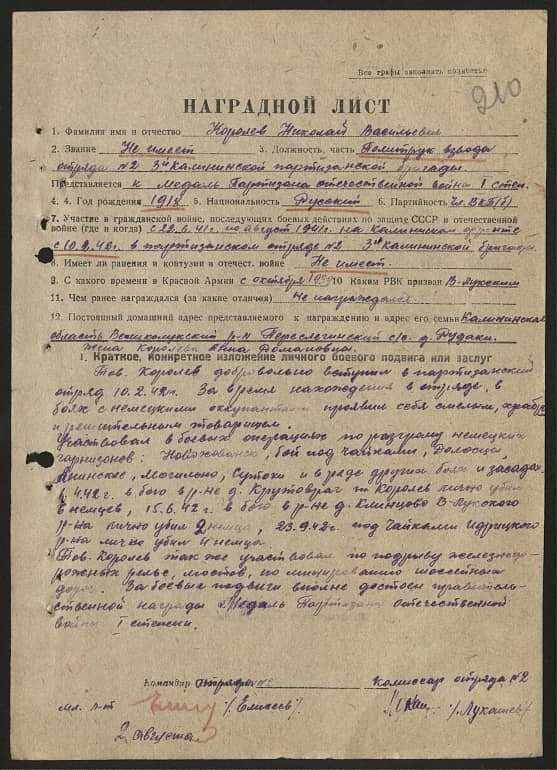 Все графы заполнять полностью
210
НАГРАДНОЙ ЛИСТ
1. Фамилия имя и отчество Королев Николай Васильевич
2. Звание Не имеет 3. Должность, часть Политрук взвода
отряда №2 3й Калининской партизанской бригады.
Представляется к медаль Партизана отечественной война I степ.
4. 4. Год рождения 1918 5. Национальность Русский 6. Партийность Чл. ВКП(б)
7. Участие в гражданской войне, последующих боевых действиях по защите СССР и отечественной
войне (где и когда) с 22.6.41г. по август 1941г. на Калининском фронте
с 10.2.42г. в партизанском отряде №2 3й Калининской бригады.
8. Имеет ли ранения и контузии в отечест. войне Не имеет.
9. С какого времени в Красной Армии с октября 10 Каким РВК призван В-Лукским
11. Чем ранее награждался (за какие отличия) не награждался
12. Постоянный домашний адрес представляемого к награждению и адрес его семьи Калининская
область Великолукский р-н Переслегинский с/с. д. Рудаки.
жена Королева Анна Романовна.
I. Краткое, конкретное изложение личного боевого подвига или заслуг
Тов. Королев добровольно вступил в партизанский
отряд 10.2.42г. За время нахождения в отряде, в
боях с немецкими оккупантами проявил себя смелым, храбрым
и решительным товарищем.
Участвовал в боевых операциях по разгрому немецких
гарнизонов: бой под Чайками, Долосцы,
Могильно, Сутоки и в ряде других боях и засадах.
4.42г. в бою в р-не д. Крутовраг т. Королев лично убил
немцев, 15.6.42г. в бою в р-не д. Клинцово В-Лукского
р-на лично убил 2 немца, 23.9.42г. под Чайками Идрицкого
р-на лично убил 4 немца.
Тов. Королев также участвовал по подрыву железнодо-
рожных рельс, мостов, по минированию шоссейных
дорог. За боевые подвиги в войне достоен правитель-
ственной награды "Медаль Партизана отечественной
войны I степени.
Командир
Комиссар отряда №2
мл. л-т /Лукашев/
2 августа